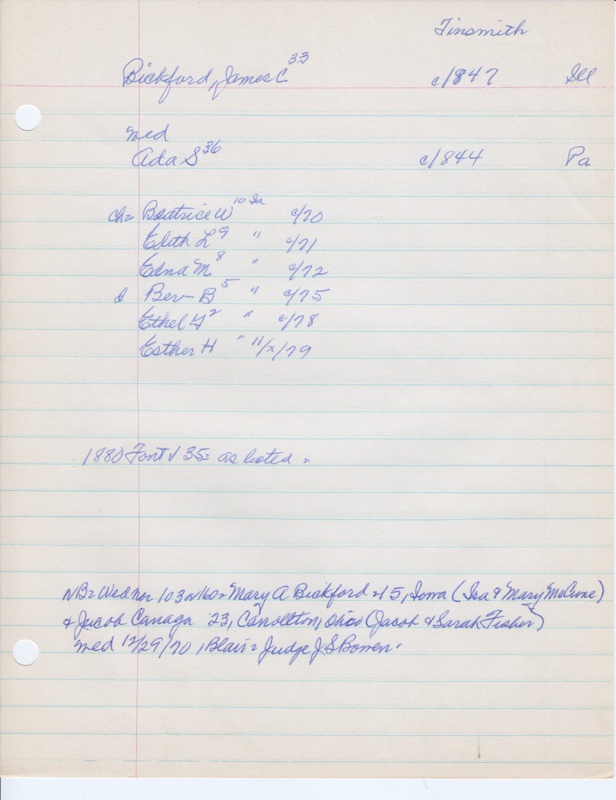 Tinsmith
Bickford, James C 33 c/1847 Ill
med
Ada S 36 c/1844 Pa
ch= Beatrice W 10 Ia c/70
Edith L 9 " c/71
Edna M 8 " c/72
Ben B 5 " c/75
Ethel 2 " c/78
Esther H " 11/x/79
1880 Font 35= as listed.
NB= Wed no 103 Mary A Bickford 15, Iowa (Ira & Mary McCune)
& Jacob Canaga 23, Carrollton, Ohio (Jacob & Sarah Fisher)
med 12/29/70, Blair= Judge J S Bowen.